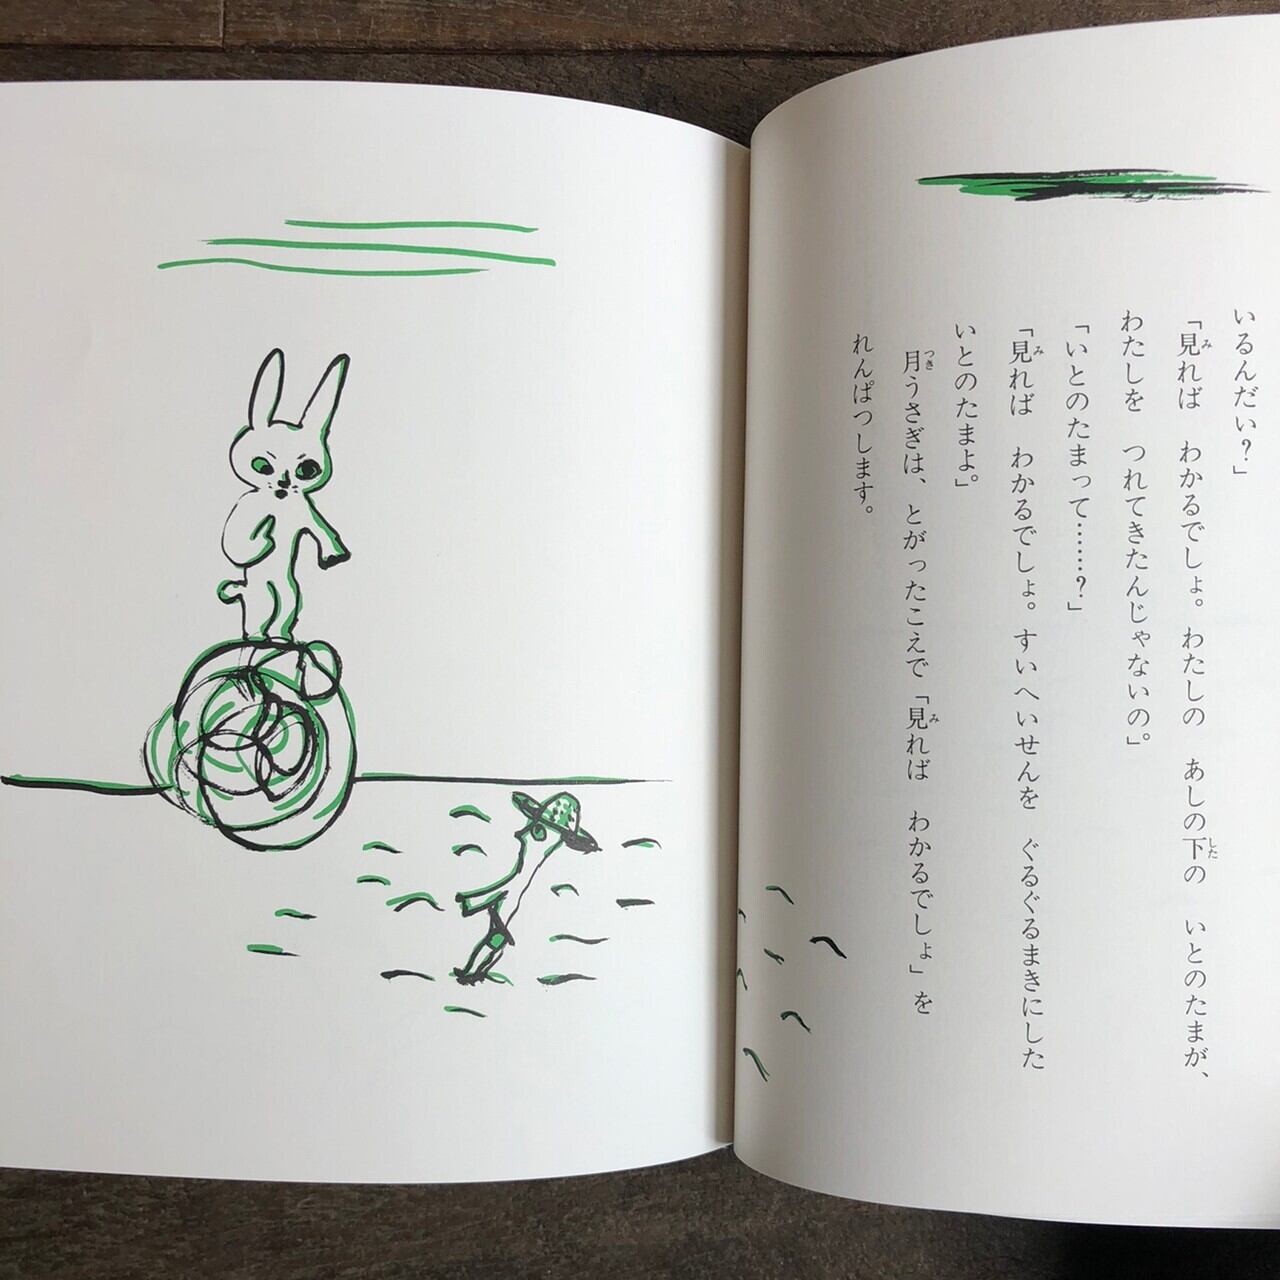 いるんだい？」
「見れば　わかるでしょ。わたしの　あしの下の　いとのたまが、
わたしを　つれてきたんじゃないの。」
「いとのたまって……？」
「見れば　わかるでしょ。すいへいせんを　ぐるぐるまきにした
いとのたまよ。」
月うさぎは、とがったこえで「見れば　わかるでしょ」を
れんぱつします。